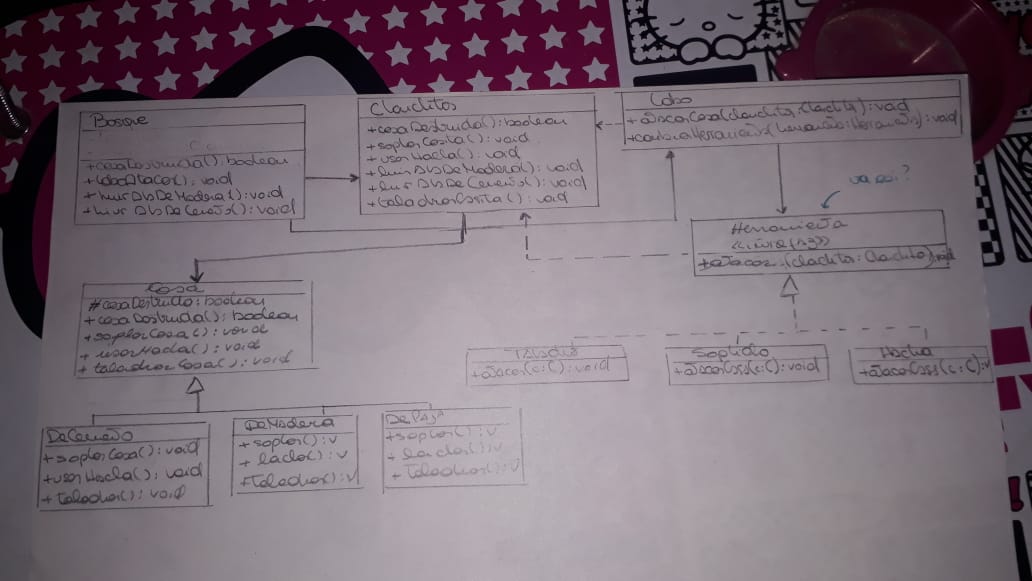 Bosque
+casaDestruida(): boolean
+loboAtacar(): void
+huirDIsDeMadera(): void
+huirDIsDeCemento(): void
Clauditos
+casaDestruida(): boolean
+soplarCasita(): void
+usarHacha(): void
+huirDIsDeMadera(): void
+huirDIsDeCemento(): void
+taladrarCasita(): void
Lobo
+atacarCasa(claudito: Claudito): void
+cambiarHerramienta(herramienta: Herramienta): void
va asi?
Herramienta
+atacar (claudito: Claudito): void
Casa
#casaDestruida: boolean
+casaDestruida(): boolean
+soplarCasa(): void
+usarHacha(): void
+taladrarCasa(): void
Taladro
+atacar(c:C): void
Soplido
+atacarCasa(c:C): void
Hacha
+atacarCasa(c:C): v
DeCemento
+soplarCasa(): void
+usarHacha(): void
+taladrar(): void
DeMadera
+soplar(): v
+hacha(): v
+taladrar(): v
DePaja
+soplar(): v
+hacha(): v
+taladrar(): v